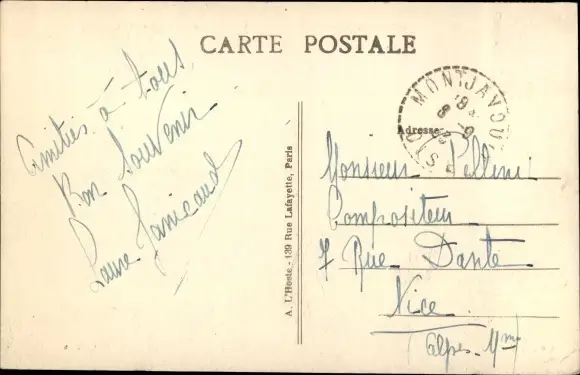 CARTE POSTALE
Amitiés à tous
Bon Souvenir
Laure Janicaud
A. L'Hoste.-139 Rue Lafayette, Paris
MONTJAVOU
Adresse
Monsieur Pellini
Compositeur
7 Rue Dante
Nice
Alpes-Mmes